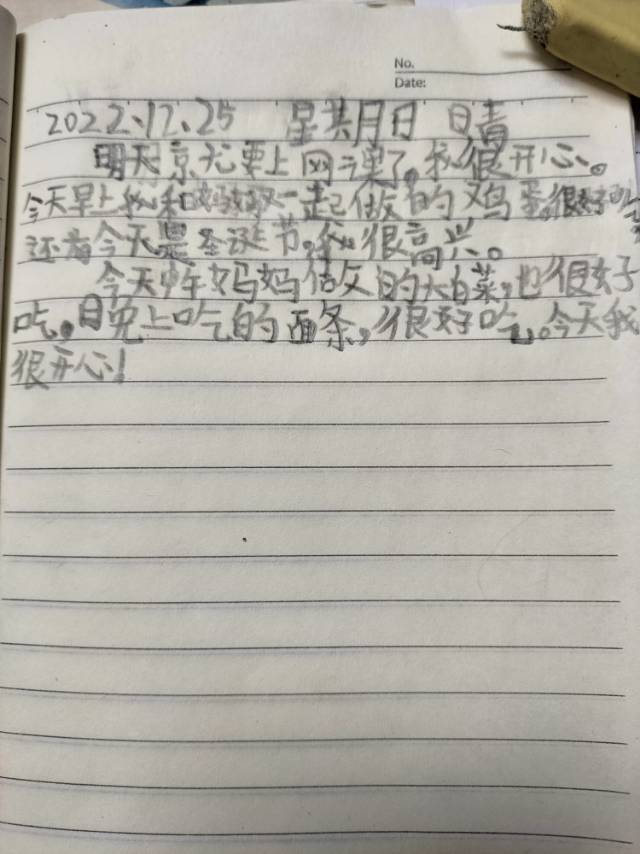 No.
Date:
2022.12.25 星其月日 日青
明天京尤要上网课了。我很开心。
今天早上我和妈妈一起做的鸡蛋,很好吃
还有今天是圣诞节,我很高兴。
今天中午妈妈做的大白菜,也很好
吃。晚上吃的面条,很好吃。今天我
很开心!